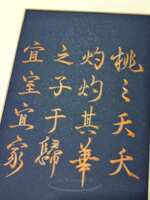 桃〻夭夭
灼灼其華
之子于歸
宜室宜家